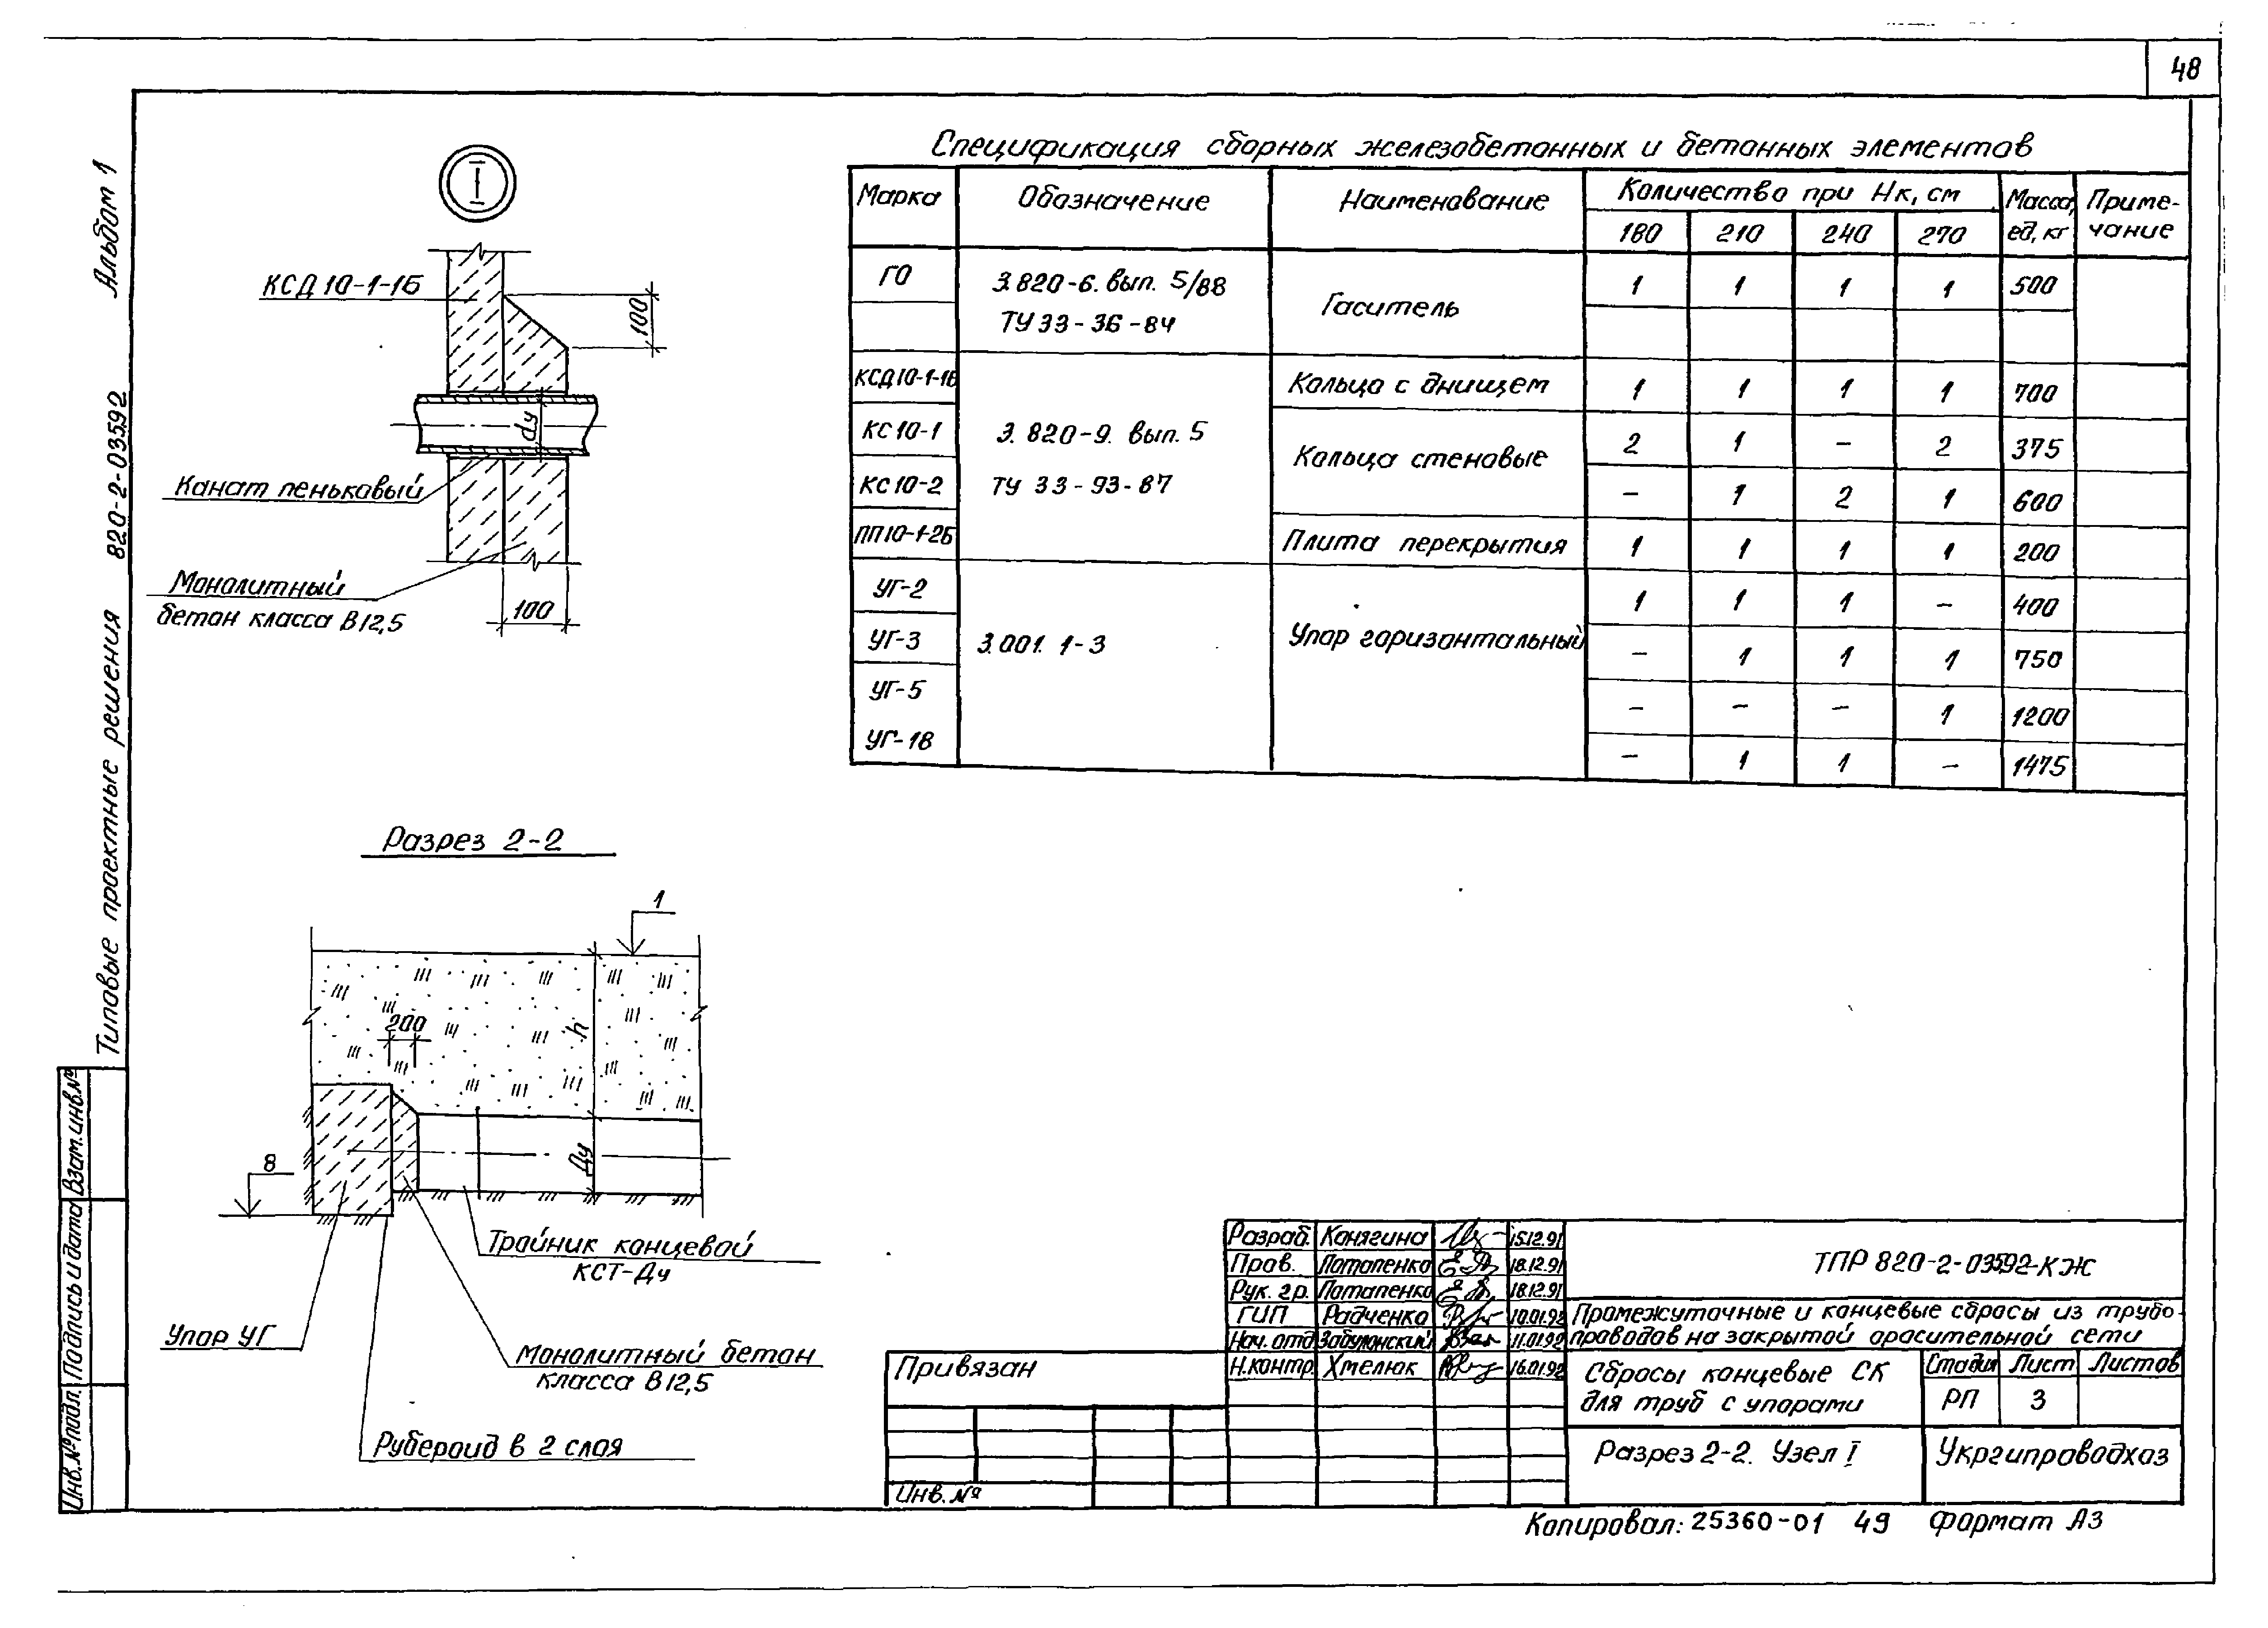 48
Альбом 1
820-2-03592
Типовые проектные решения
Взам.инв.№
Подпись и дата
Инв.№подл.
I
КСД 10-1-1Б
100
dу
Канат пеньковый
Монолитный
бетон класса В12,5
100
Разрез 2-2
1
200
h
Ду
8
Тройник концевой
КСТ-Ду
Упор УГ
Монолитный бетон
класса В12,5
Рубероид в 2 слоя
Спецификация сборных железобетонных и бетонных элементов
Марка Обозначение Наименование Количество при Нк, см Масса, ед, кг Приме-чание
180 210 240 270
ГО 3.820-6. вып. 5/88 Гаситель 1 1 1 1 500
ТУ 33-36-84
КСД10-1-1Б Кольцо с днищем 1 1 1 1 700
КС 10-1 3.820-9. вып. 5 Кольца стеновые 2 1 – 2 375
КС 10-2 ТУ 33-93-87 – 1 2 1 600
ПП10-1-2Б Плита перекрытия 1 1 1 1 200
УГ-2 1 1 1 – 400
УГ-3 3.001.1-3 Упор горизонтальный – 1 1 1 750
УГ-5 – – – 1 1200
УГ-18 – 1 1 – 1475
Разраб. Конягина 15.12.91
Пров. Потапенко 18.12.91
Рук. гр. Потапенко 18.12.91
ГИП Радченко 10.01.92
Нач. отд. 11.01.92
Н.контр. Хмелюк 16.01.92
ТПР 820-2-03592-КЖ
Промежуточные и концевые сбросы из трубо-
проводов на закрытой оросительной сети
Привязан
Инв. №
Сбросы концевые СК
для труб с упорами
Стадия Лист Листов
РП 3
Разрез 2-2. Узел I
Укргипроводхоз
Копировал: 25360-01 49 Формат А3